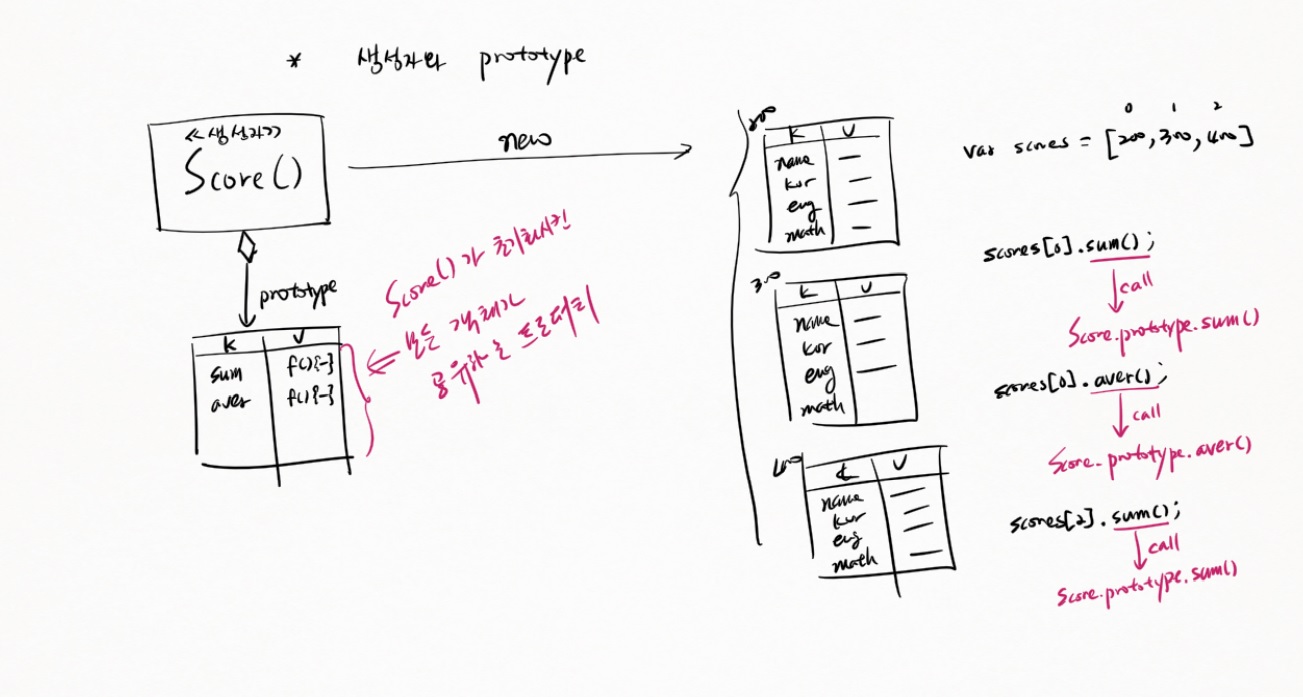 * 생성자와 prototype
<<생성자>>
Score()
new
prototype
K V
sum f(){~}
aver f(){~}
Score()가 초기화시킨
모든 객체가
공유하는 프로퍼티
200
K V
name
kor
eng
math
300
K V
name
kor
eng
math
400
K V
name
kor
eng
math
0 1 2
var scores = [200, 300, 400]
scores[0].sum();
call
Score.prototype.sum()
scores[0].aver();
call
Score.prototype.aver()
scores[2].sum();
call
Score.prototype.sum()